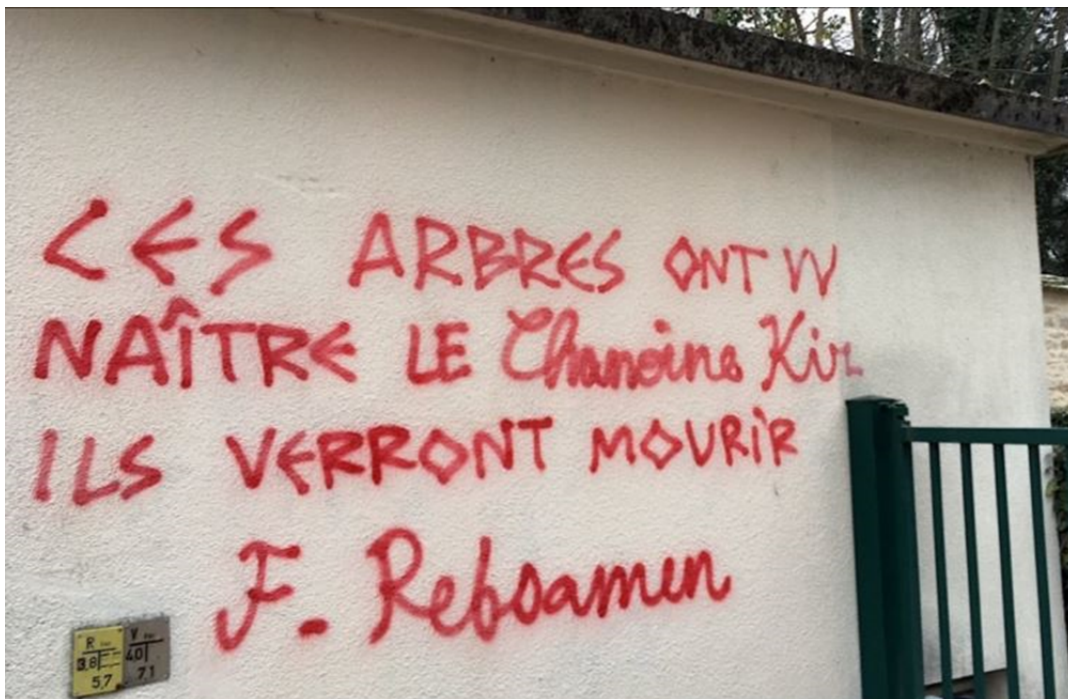 CES ARBRES ONT VV
NAÎTRE LE Chanoine Kir
ILS VERRONT MOURIR
F. Rebsamen
R V
3,8 40
5,7 71